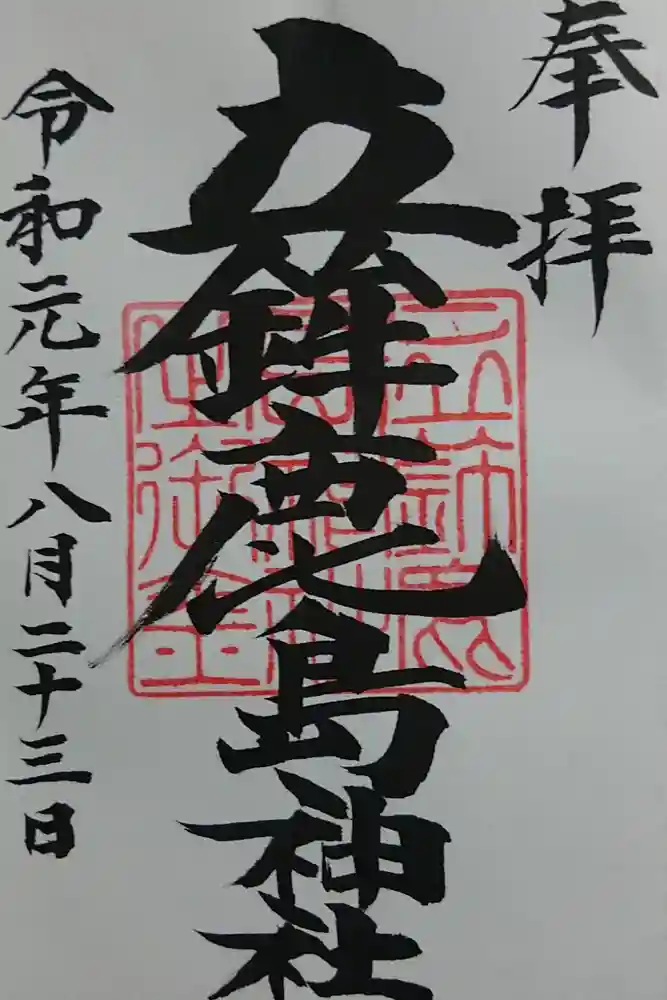 奉拝
立鉾鹿島神社
令和元年八月二十三日